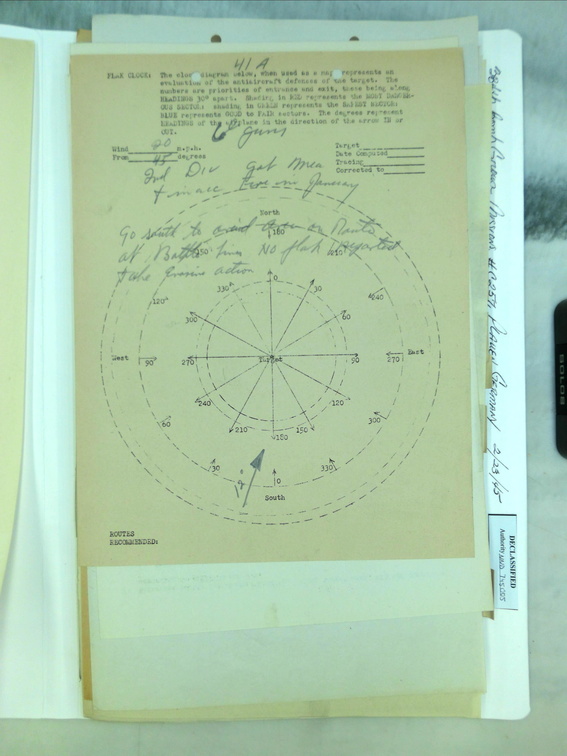 41 A
FLAK CLOCK: The clock diagram below, when used as a map represents an
evaluation of the antiaircraft defences of the target. The
numbers are priorities of entrance and exit, these being along
HEADINGS 30° apart. Shading in RED represents the MOST DANGER-
OUS SECTOR: shading in GREEN represents the SAFEST SECTOR:
BLUE represents GOOD to FAIR sectors. The degrees represent
HEADINGS of the airplane in the direction of the arrow IN or
OUT.
6 guns
Wind 20 m.p.h.
From 45 degrees
Target
Date Computed
Tracing
Corrected to
2nd Div got
in January
North
180
Go south to
at Battle lines No flak reported
take evasive action
150
210
0
330
30
120°
240
300
60
West
90
270
Target
90
270
East
240
120
60
300
210
150
180
30
330
12°
0
South
ROUTES
RECOMMENDED:
Germany 2/23/45
DECLASSIFIED
Authority NND 745055